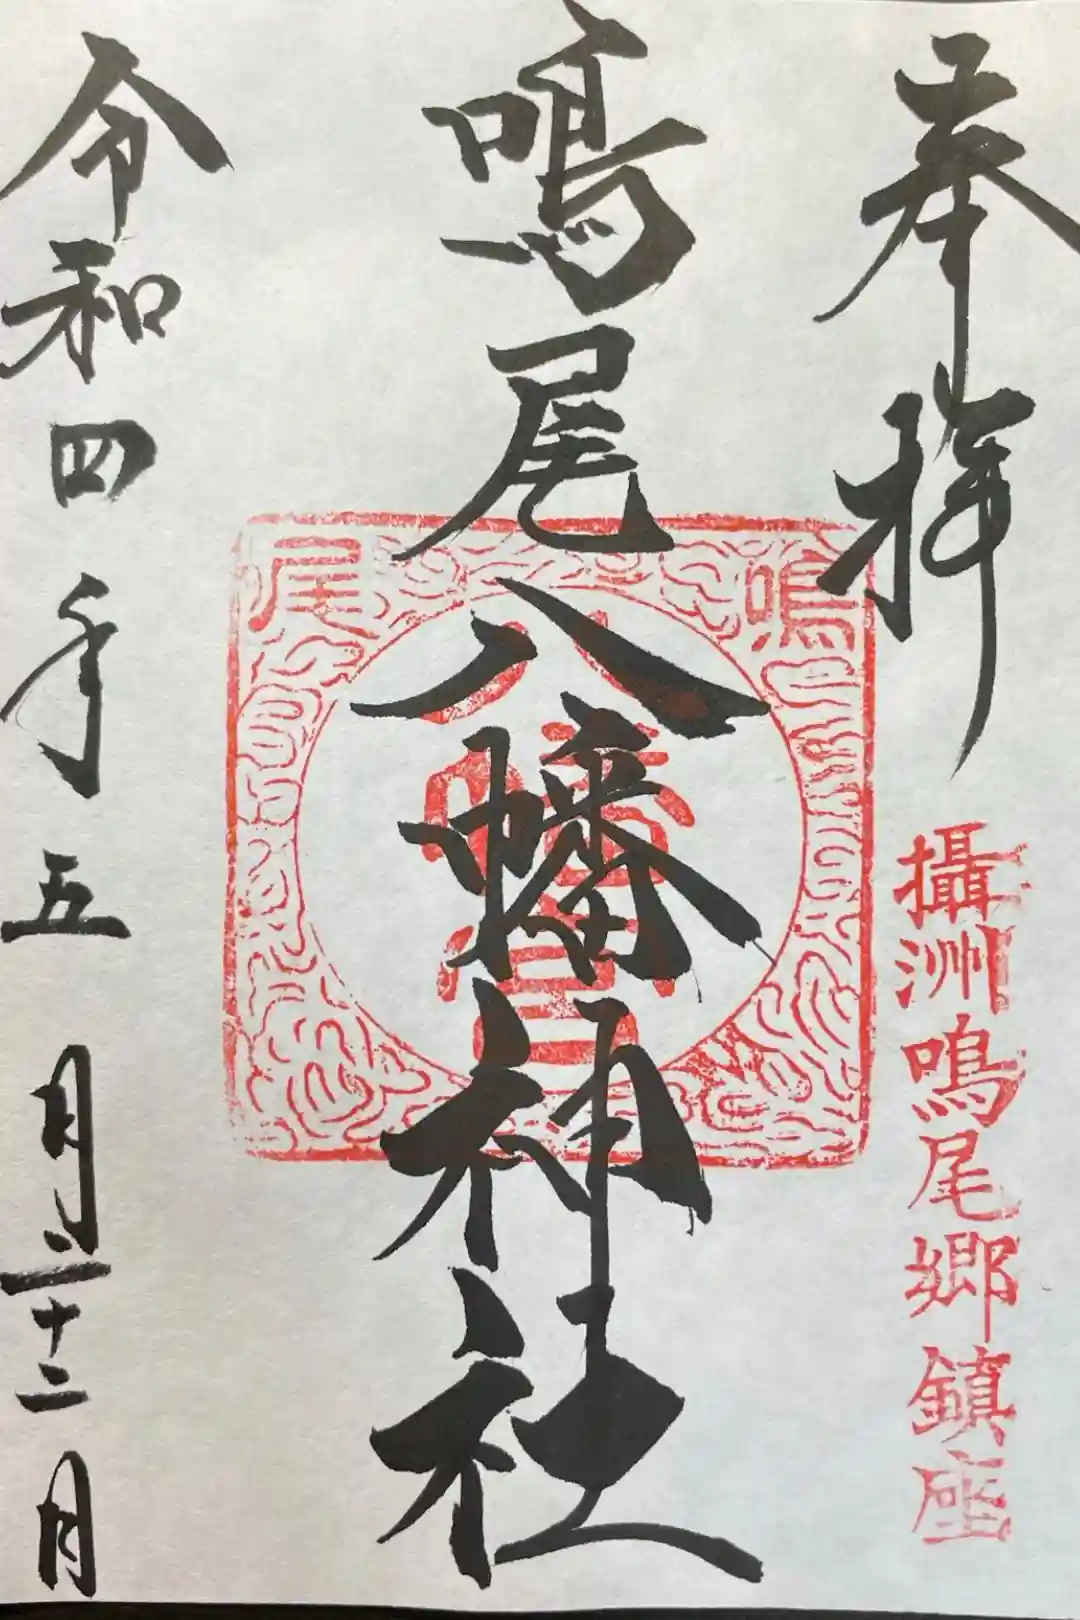 奉拝
攝洲鳴尾郷鎮座
鳴尾八幡神社
鳴尾
八幡宮
令和四年五月二十二日